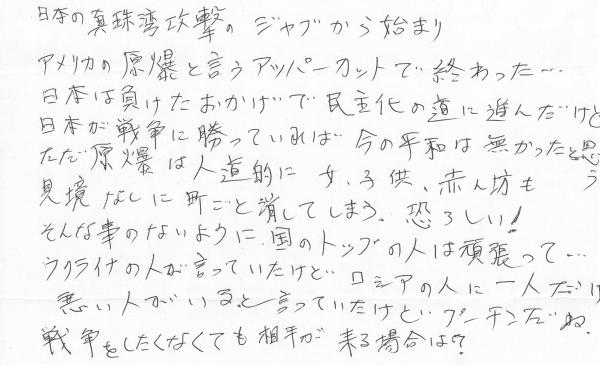 日本の真珠湾攻撃のジャブから始まり
アメリカの原爆と言うアッパーカットで終わった…
日本は負けたおかげで民主化の道に進んだけど
日本が戦争に勝っていれば今の平和は無かったと思う
ただ原爆は人道的に女、子供、赤ん坊も
見境なしに町ごと消してしまう、恐ろしい!
そんな事のないように、国のトップの人は頑張って…
ウクライナの人が言っていたけど、ロシアの人に一人だけ
悪い人がいると言っていたけどプーチンだね.
戦争をしたくなくても相手が来る場合は?